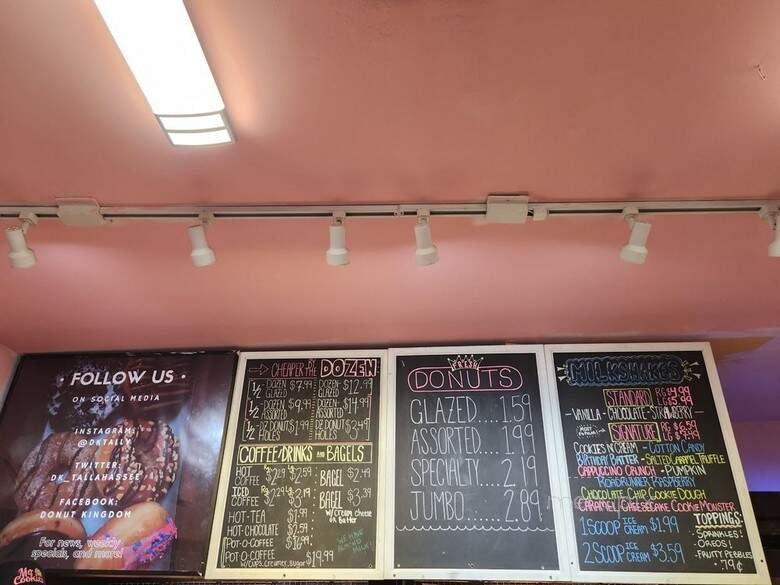 FOLLOW US
ON SOCIAL MEDIA
INSTAGRAM:
@DKTALLY
TWITTER:
DK_TALLAHASSEE
FACEBOOK:
DONUT KINGDOM
For news, weekly
specials, and more!
CHEAPER THE DOZEN
1/2 DOZEN GLAZED $7.99 DOZEN GLAZED $12.99
1/2 DOZEN ASSORTED $9.99 DOZEN ASSORTED $14.99
1/2 DZ DONUT HOLES $1.99 DZ DONUT HOLES
COFFEE/DRINKS AND BAGELS
HOT COFFEE $2.59 BAGEL $2.49
ICED COFFEE BAGEL $3.39
W/ Cream Cheese or Butter
HOT-TEA
HOT-CHOCOLATE
POT-O-COFFEE
POT-O-COFFEE $19.99
W/ CUPS, Creamer, Sugar
FRESH
DONUTS
GLAZED....1.59
ASSORTED...1.99
SPECIALTY....2.19
JUMBO.....2.89
MILKSHAKES
STANDARD RG $4.99
LG $5.99
-VANILLA-CHOCOLATE-STRAWBERRY-
SIGNATURE
COOKIES N' CREAM - COTTON CANDY
BIRTHDAY BATTER - SALTED CARAMEL TRUFFLE
CAPPUCCINO CRUNCH - PUMPKIN
ROADRUNNER RASPBERRY
CHOCOLATE CHIP COOKIE DOUGH
CARAMEL CHEESECAKE COOKIE MONSTER
1 SCOOP ICE CREAM $1.99
2 SCOOP ICE CREAM $3.59
TOPPINGS:
-SPRINKLES!
-OREOS!
-FRUITY PEBBLES
.79¢